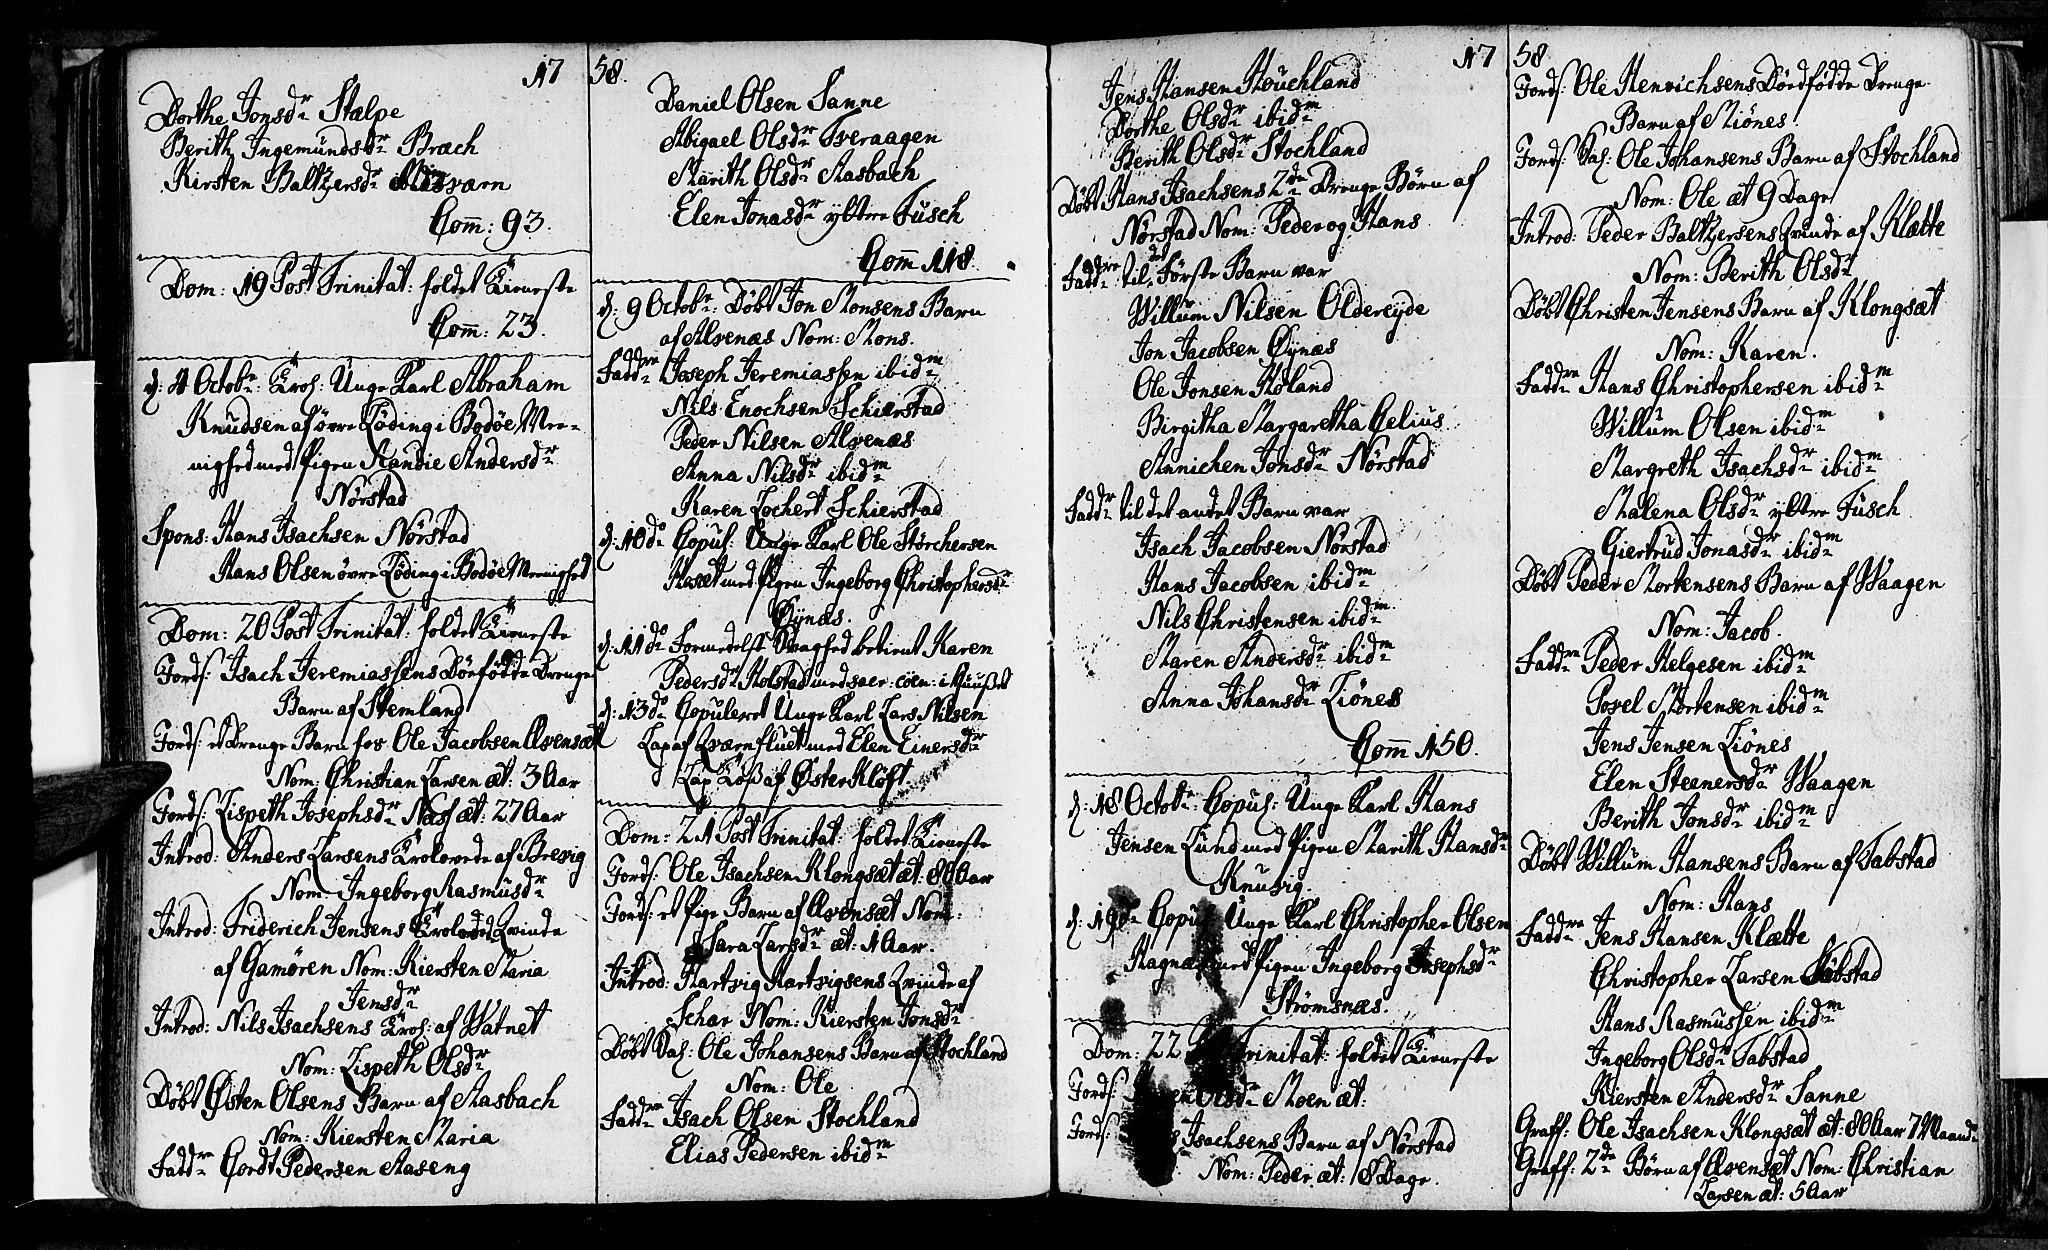 17 58.
Dorthe Jonsdr Stælpe
Berith Ingemundsdr Bræch
Kirsten Baltzersdr Misværn
Com̄: 93.
Dom: 19 Post Trinitat: holdet Tieneste
Com̄: 23.
d: 4 Octobr: Trol: Unge Karl Abraham
Knudsen af øvre Løding i Bodøe Me-
nighed med Pigen Randie Andersdr
Nørstad
Spons: Hans Isachsen Nørstad
Hans Olsen øvre Løding i Bodøe Menighed
Dom: 20 Post Trinitat: holdet Tieneste
Jords: Isach Jeremiassens Dødfødde Drenge
Barn af Stemland
Jords: et Drenge Barn for Ole Jacobsen Evensæt
Nom: Christian Larsen æt: 3 Aar
Jords: Lispeth Josephsdr Næss æt: 27 Aar
Introd: Anders Larsens Trolovede af Brevig
Nom: Ingeborg Rasmusdr
Introd: Friderich Jensens Trolovede Qvinde
af Gamøren Nom: Kiersten Maria
Jensdr
Introd: Nils Isachsens Trol: af Watnet
Nom: Lispeth Olsdr
Døbt Østen Olsens Barn af Aasbach
Nom: Kiersten Maria
Faddre Cordt Pedersen Aaseng
Daniel Olsen Sanne
Abigael Olsdr Tveraagen
Marith Olsdr Aasbach
Elen Jonasdr yttre Fusch
Com̄ 118.
d: 9 Octobr: Døbt Jon Monsens Barn
af Alvenæs Nom: Mons.
Faddre Joseph Jeremiassen ibidm
Nils Enochsen Schierstad
Peder Nilsen Alvenæs
Anna Nilsdr ibidm
Karen Lochert Schierstad
d: 10do Copul: Unge Karl Ole Størchersen
Aasæt med Pigen Ingeborg Christophersdr
Øynæs.
d: 11do Formedelst Svaghed betient Karen
Pedersdr Holstad med sacr: coen: i Huuset
d: 13do Copuleret Unge Karl Lars Nilsen
Lap af Qværnfluet med Elen Einersdr
Lap Tøß af Øster Kløft.
Dom: 21 Post Trinitat: holdet Tieneste
Jords: Ole Isachsen Klongsæt æt: 80 Aar
Jords: et Pige Barn af Evensæt Nom:
Sara Larsdr æt: 1 Aar.
Introd: Hartvig Hartvigsens Qvinde af
Schar Nom: Kiersten Jonsdr
Døbt Sal: Ole Johansens Barn af Stochland
Nom: Ole
Faddre Isach Olsen Stochland
Elias Pedersen ibidm
17 58
Jens Hansen Stouchland
Dorthe Olsdr ibidm
Berith Olsdr Stochland
Døbt Hans Isachsens 2de Drenge Børn af
Nørstad Nom: Peder og Hans
Faddre til det Første Barn var
Willum Nilsen Oldereyde
Jon Jacobsen Øynæs
Ole Jonsen Høland
Birgitha Margaretha Gelius
Annichen Jonsdr Nørstad
Faddr til det andet Barn var
Isach Jacobsen Nørstad
Hans Jacobsen ibidm
Nils Christensen ibidm
Maren Andersdr ibidm
Anna Johansdr Tiønes
Com̄ 150.
d: 18 Octobr: Copul: Unge Karl Hans
Jensen Lund med Pigen Marith Hansdr
Knevig.
d: 19do Copul: Unge Karl Christopher Olsen
Hagnæs med Pigen Ingeborg Josephsdr
Strømsnæs.
Dom: 22 Trinitat: holdet Tieneste
Jords: Olsdr Moen æt:
Jords: Isachsens Barn af Nørstad
Nom: Peder æt: 8 Dage.
Jords: Ole Henrichsens Dødfødde Drenge
Barn af Miønes.
Jords: Sal: Ole Johansens Barn af Stochland
Nom: Ole æt 9 Dage
Introd: Peder Baltzersens Qvinde af Klætte
Nom: Berith Olsdr
Døbt Christen Jensens Barn af Klongsæt
Nom: Karen.
Faddre Hans Christophersen ibidm
Willum Olsen ibidm
Margreth Isachsdr ibidm
Malena Olsdr yttre Fusch
Giertrud Jonasdr ibidm
Døbt Peder Mortensens Barn af Waagen
Nom: Jacob.
Faddre Peder Helgesen ibidm
Povel Mortensen ibidm
Jens Jensen Tiønes
Elen Steenersdr Waagen
Berith Jonsdr ibidm
Døbt Willum Hansens Barn af Tabstad
Nom: Hans
Faddre Jens Hansen Klætte
Christopher Larsen Tabstad
Hans Rasmussen ibidm
Ingeborg Olsdr Tabstad
Kiersten Andersdr Sanne
Graff: Ole Isachsen Klongsæt æt: 80 Aar 7 Maand
Graff: 2de Børn af Evensæt Nom: Christian
Larsen æt: 5 Aar